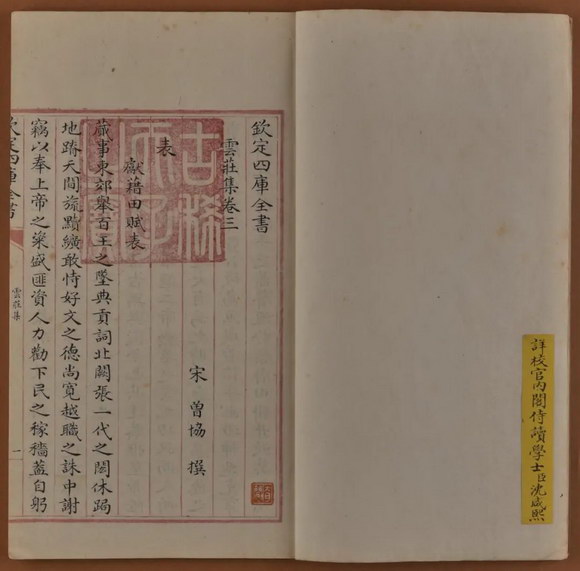 詳校官内閣侍讀學士臣沈咸熙
欽定四庫全書
雲莊集卷三
宋 曾協 撰
表
獻藉田賦表
蕆事東郊舉百王之墜典貢詞北闕張一代之閎休跼
地蹐天間旒黈纊敢恃好文之德尚寬越職之誅中謝
竊以奉上帝之粢盛匪資人力勸下民之稼穡葢自躬
欽定四庫全書
雲莊集
一
古稀
天子